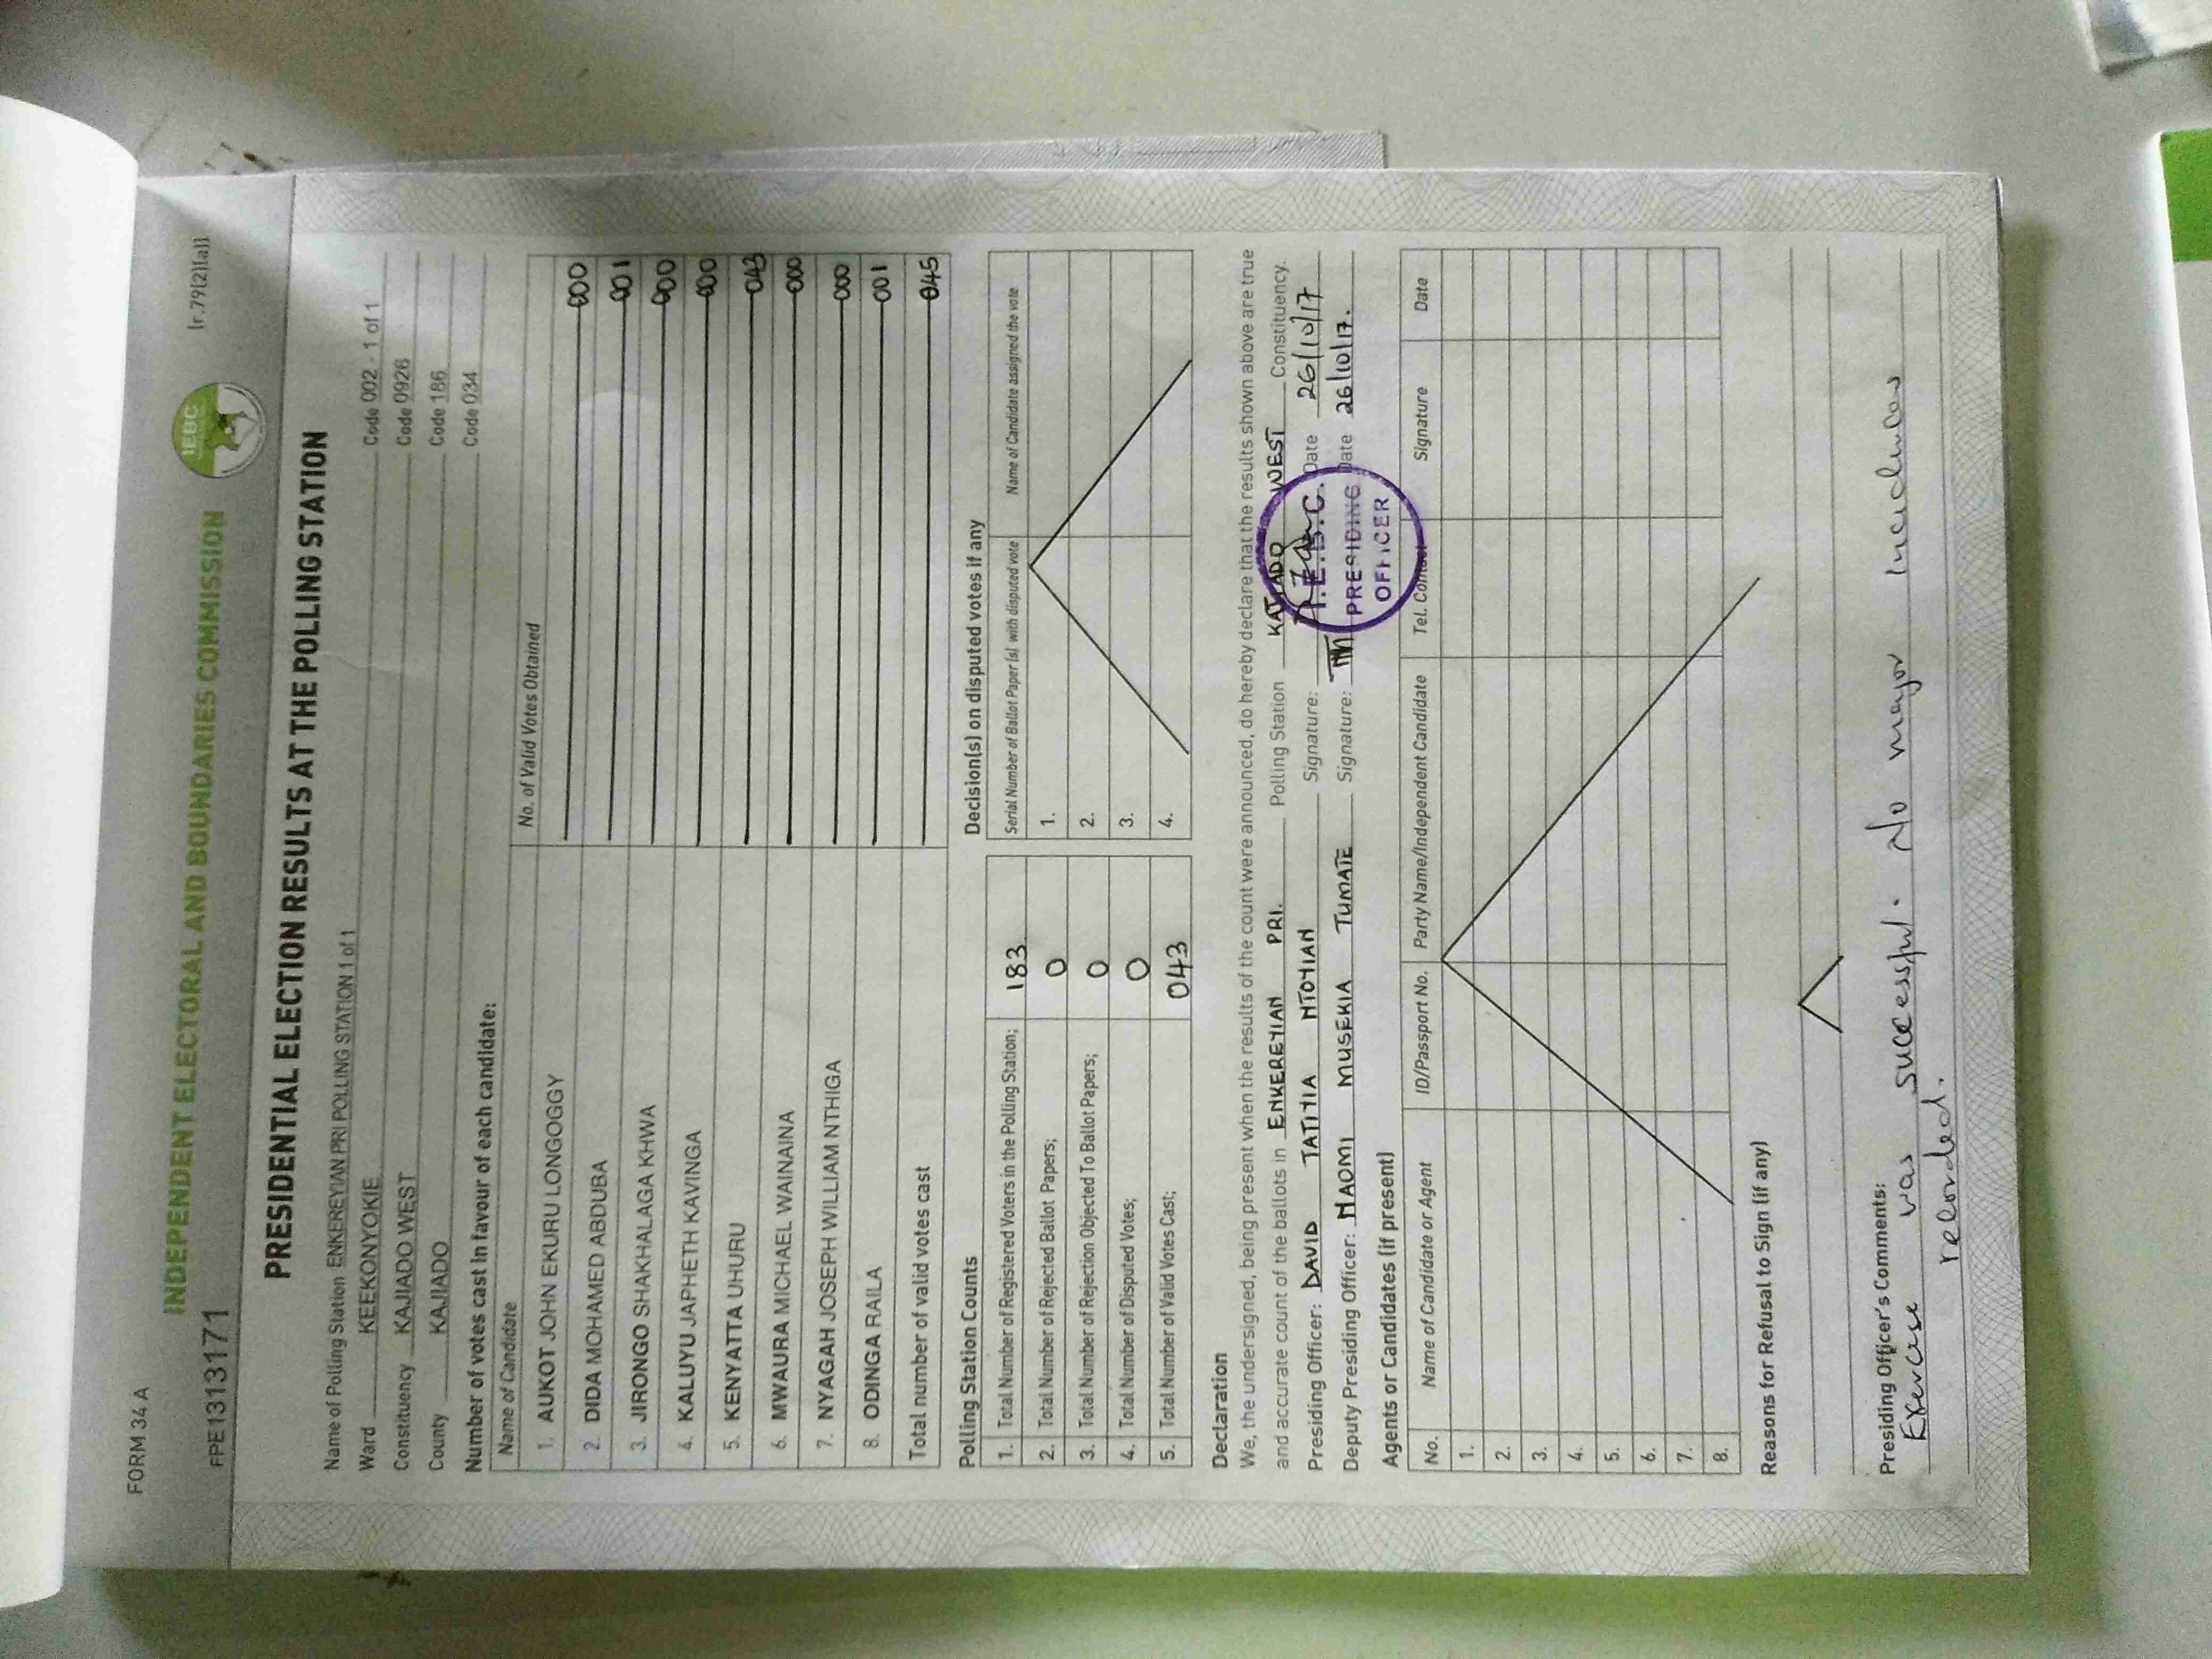 FORM 34 A
INDEPENDENT ELECTORAL AND BOUNDARIES COMMISSION
IEBC
FPE1313171
(r.79(2)(a))
PRESIDENTIAL ELECTION RESULTS AT THE POLLING STATION
Name of Polling Station ENKEREYIAN PRI POLLING STATION 1 of 1 Code 002 - 1 of 1
Ward KEEKONYOKIE Code 0926
Constituency KAJIADO WEST Code 186
County KAJIADO Code 034
Number of votes cast in favour of each candidate:
Name of Candidate No. of Valid Votes Obtained
1. AUKOT JOHN EKURU LONGOGGY 000
2. DIDA MOHAMED ABDUBA 001
3. JIRONGO SHAKHALAGA KHWA 000
4. KALUYU JAPHETH KAVINGA 000
5. KENYATTA UHURU 043
6. MWAURA MICHAEL WAINAINA 000
7. NYAGAH JOSEPH WILLIAM NTHIGA 000
8. ODINGA RAILA 001
Total number of valid votes cast 045
Polling Station Counts
1. Total Number of Registered Voters in the Polling Station; 183
2. Total Number of Rejected Ballot Papers; 0
3. Total Number of Rejection Objected To Ballot Papers; 0
4. Total Number of Disputed Votes; 0
5. Total Number of Valid Votes Cast; 043
Decision(s) on disputed votes if any
Serial Number of Ballot Paper (s) with disputed vote Name of Candidate assigned the vote
1.
2.
3.
4.
Declaration
We, the undersigned, being present when the results of the count were announced, do hereby declare that the results shown above are true
and accurate count of the ballots in ENKEREYIAN PRI. Polling Station KAJIADO WEST Constituency.
Presiding Officer: DAVID TATITIA NTOYIAN Signature: Date 26/10/17
Deputy Presiding Officer: NAOMI MUSEKIA TUMATE Signature: Date 26/10/17.
I.E.B.C.
PRESIDING
OFFICER
Agents or Candidates (if present)
No. Name of Candidate or Agent ID/Passport No. Party Name/Independent Candidate Tel. Contact Signature Date
1.
2.
3.
4.
5.
6.
7.
8.
Reasons for Refusal to Sign (if any)
Presiding Officer's Comments:
Exercise was successful. No major incidences
recorded.